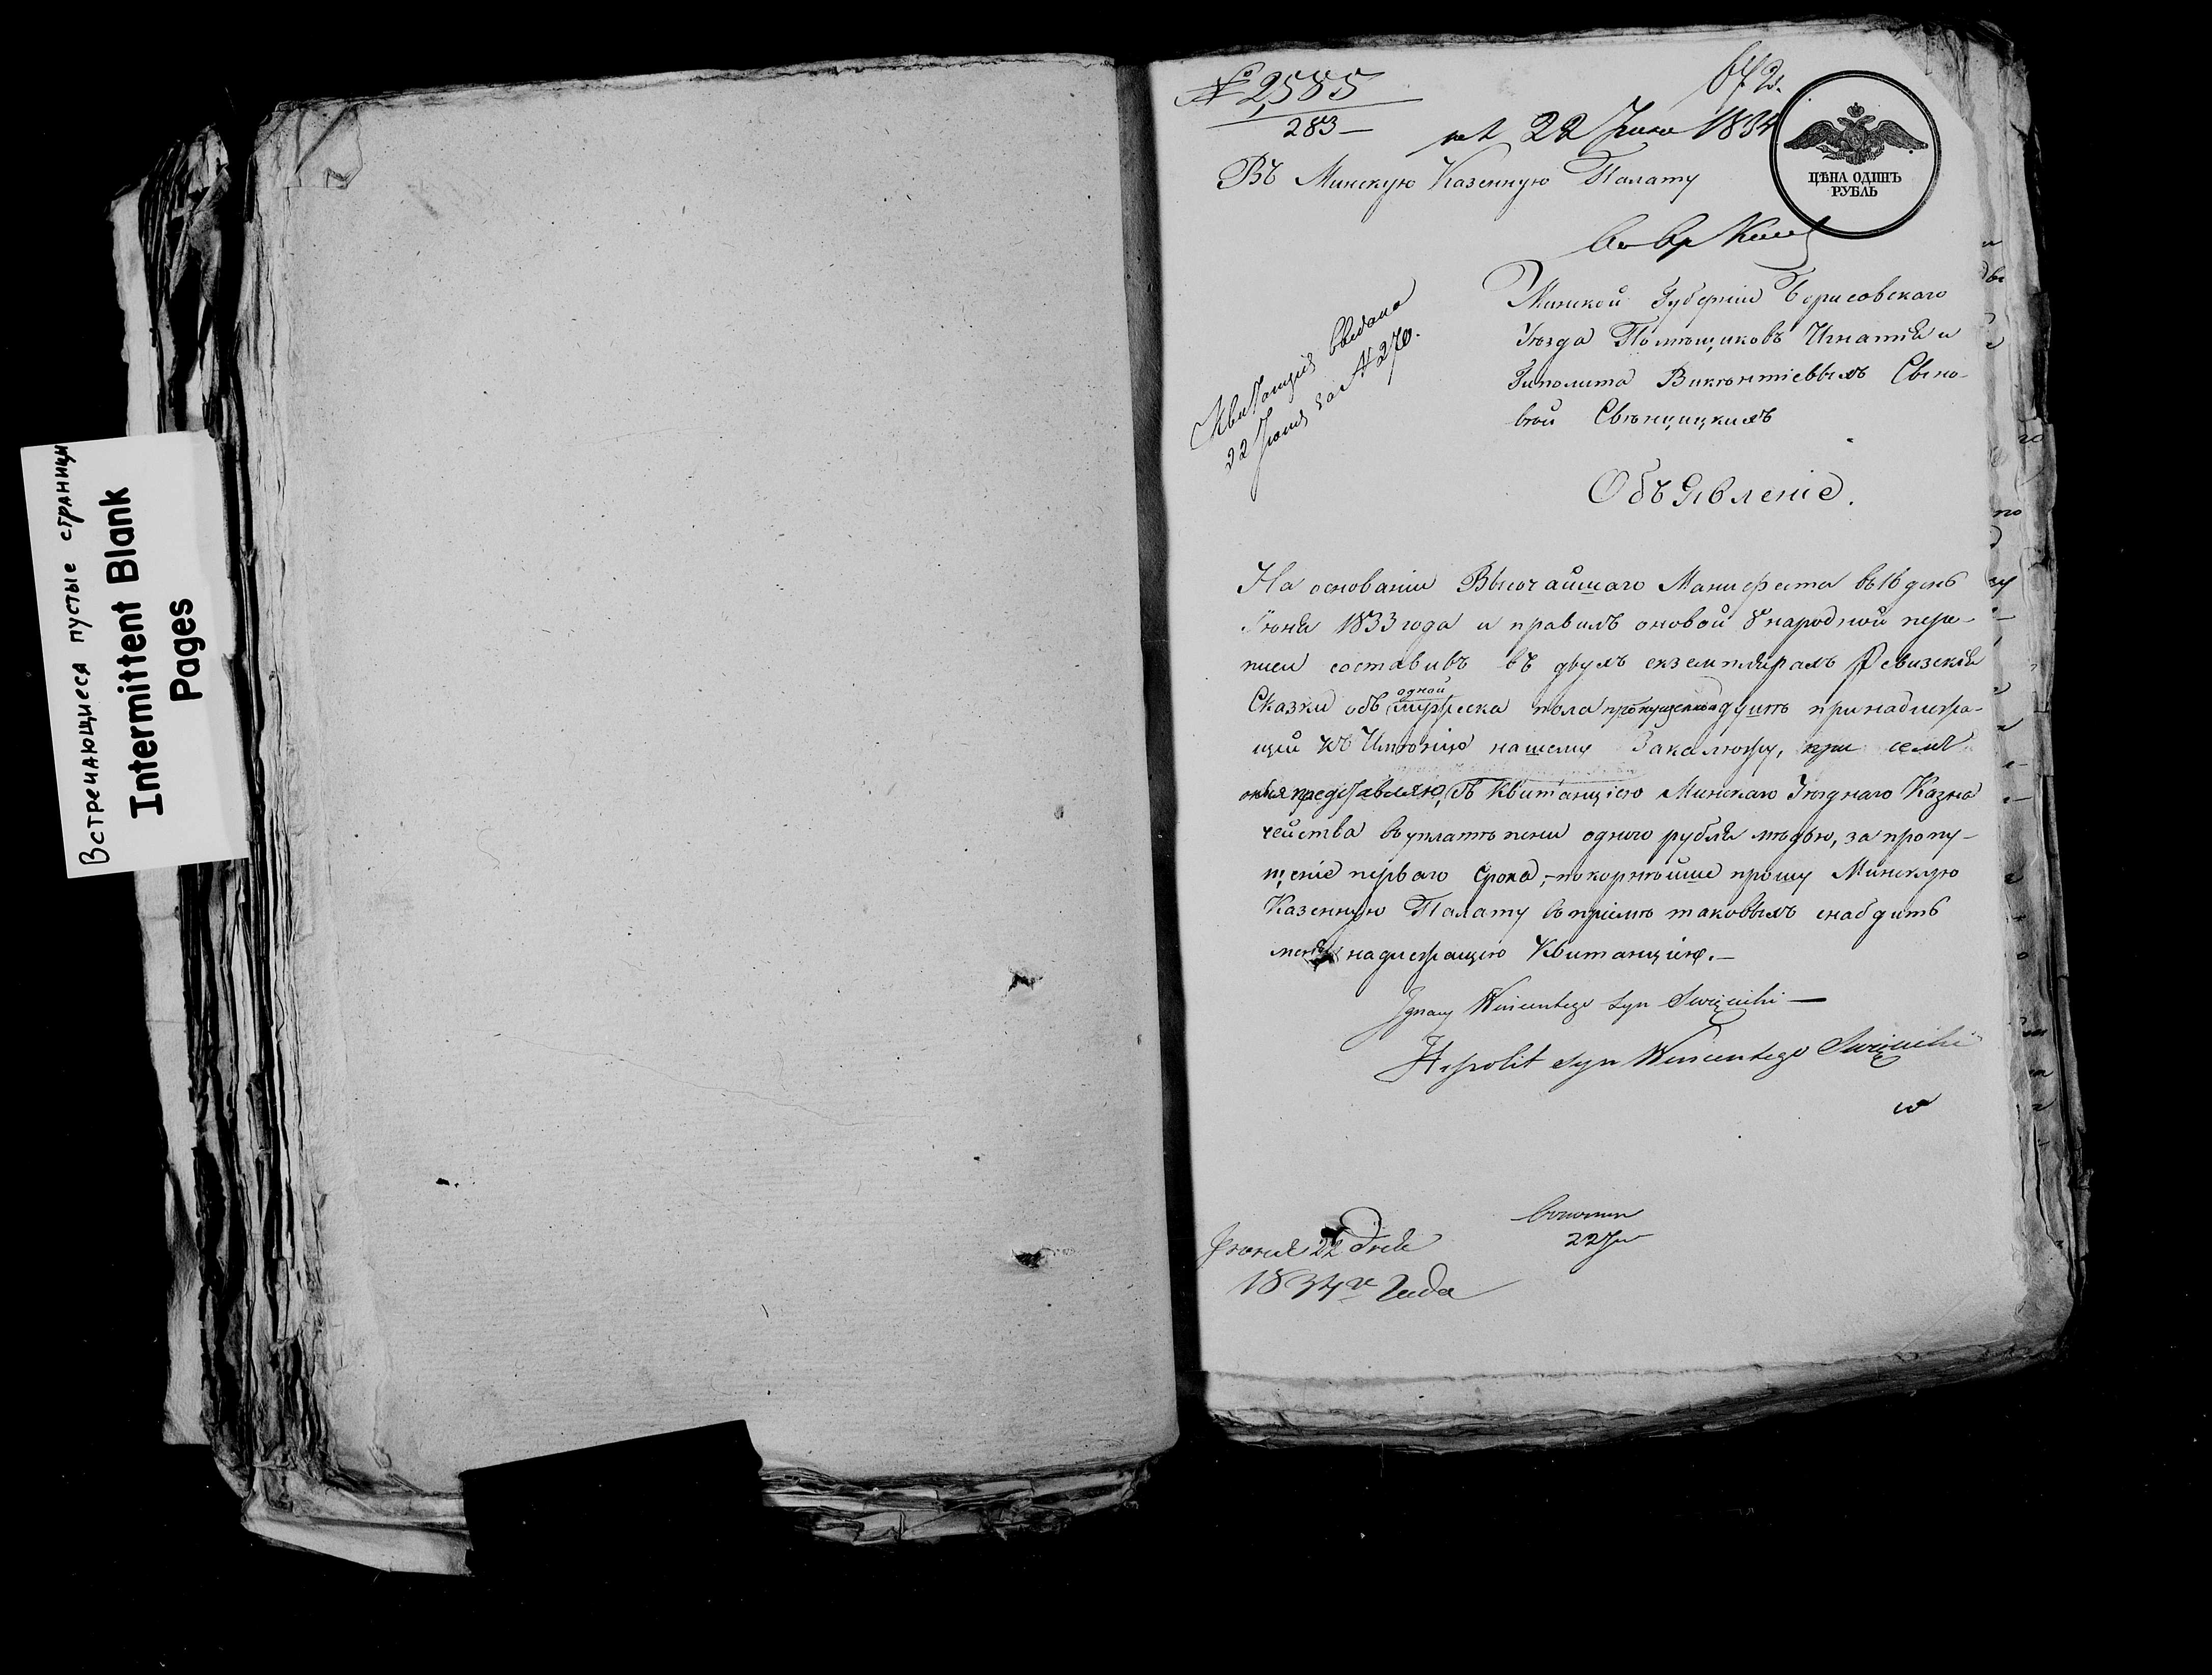 Встречающиеся пустые страницы
Intermittent Blank
Pages
№ 2585
283 —
672.
22 Июня 1834
ЦѢНА ОДИНЪ
РУБЛЬ
Въ Минскую Казенную Палату
Минской Губерніи Борисовскаго
Уѣзда Помѣщиковъ Игнатія и
Гиполита Викентіевыхъ Сыно-
вей Свенцицкихъ
Квитанція выдана
22 Іюня за № 270.
Объявленіе.
На основаніи Высочайшаго Манифеста въ 16 день
Іюня 1833 года и правилъ о новой 8 народной пере-
писи составивъ въ двухъ екземплярахъ Ревизскія
Сказки объ одной мужеска пола пропущенной душѣ принадлежа-
щей къ Имѣнію нашему Закалюжу, при семъ
оныя представляю, съ Квитанціею Минскаго Уѣзднаго Казна
чейства въ уплатѣ пени одного рубля мѣдью, за пропу-
щеніе перваго срока, – покорнѣйше прошу Минскую
Казенную Палату въ пріемѣ таковыхъ снабдить
меня надлежащею Квитанціею. —
Ignacy Wincentego syn Święcicki —
Hypolit syn Wincentego Święcicki
Іюня 22 дня
1834го Года
22 Ію